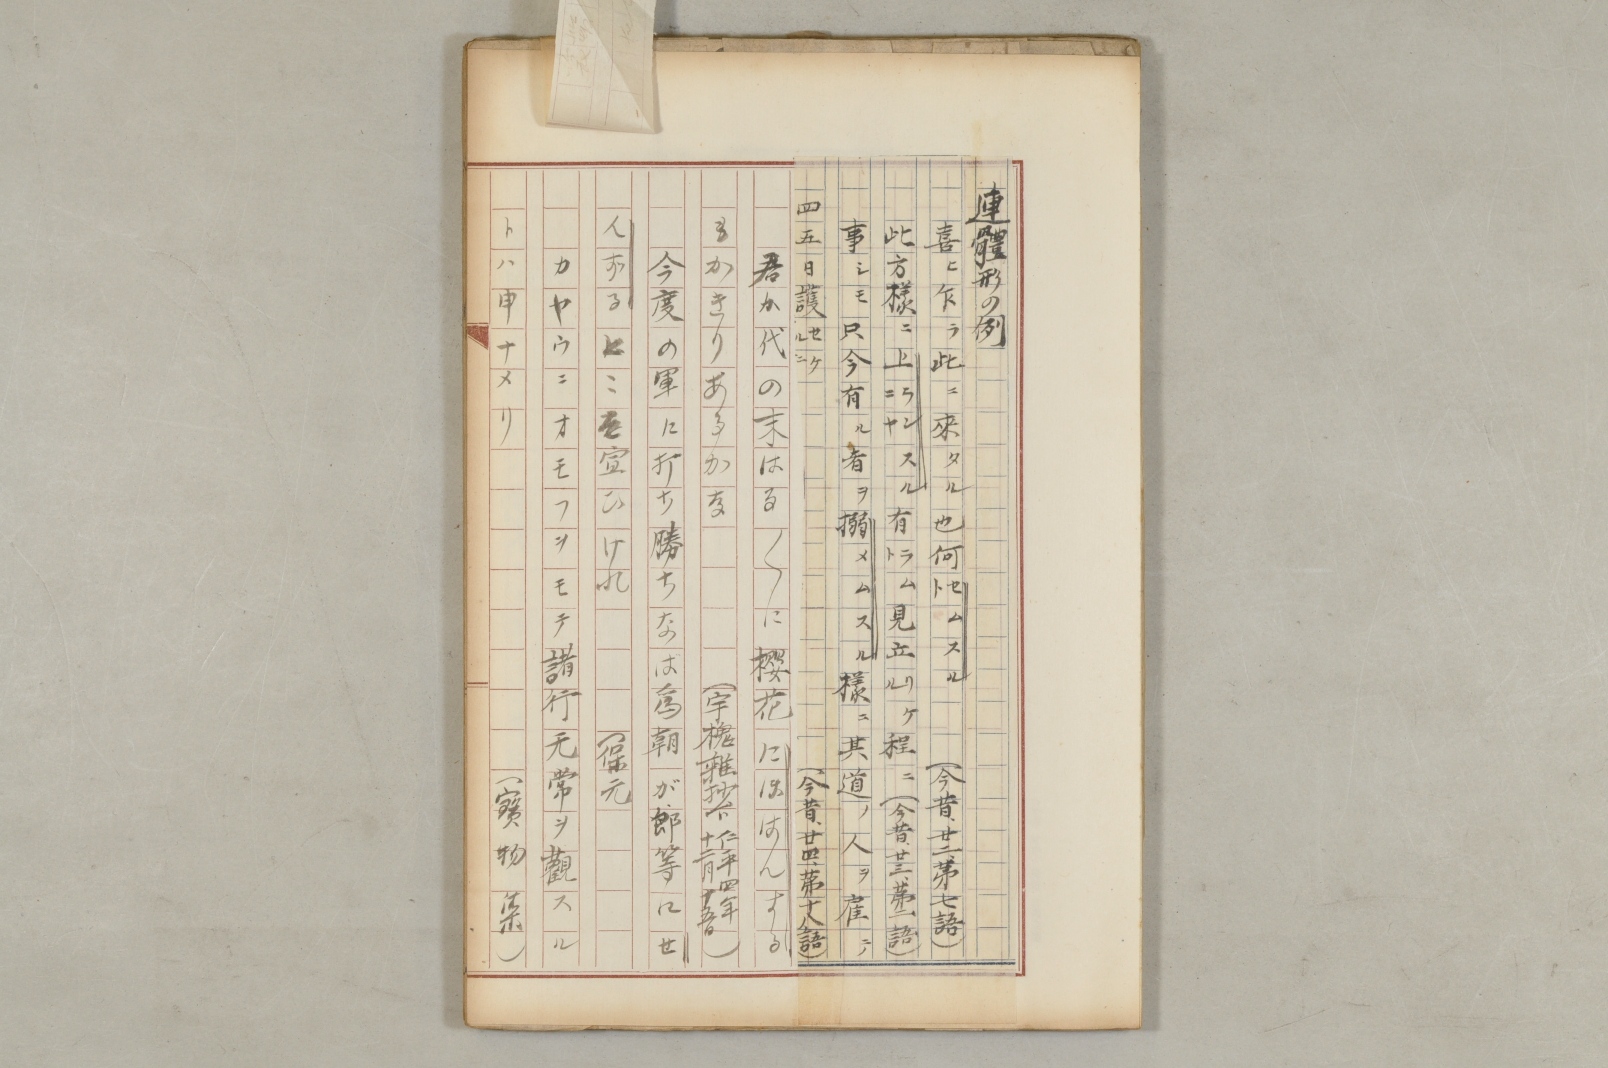 連體形の例
喜ヒ乍ラ此ニ來タル也何トセムスル（今昔、廿二、第七語）
此方樣ニ上ランスルニヤ有ラムト見立ルリケ程ニ（今昔、廿三、第一語）
事シモ只今有ル者ヲ搦メムスル樣ニ其道ノ人ヲ雇テ
四五日護セケルニ（今昔、廿四、第十八語）
君か代の末はる〱に櫻花にほはんする
もかきりあるかな（宇槐雜抄下仁平四年十二月十五日）
今度の軍に打ち勝ちなは爲朝が郎等にせ
んずるとこそ宣ひけれ（保元
カヤウニオモフヲモテ諸行无常ヲ觀スル
トハ申ナメリ（寶物集）